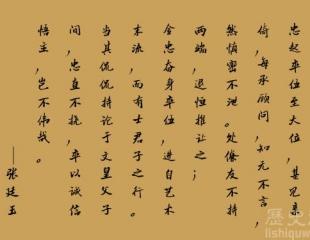 忠起卒位至大位，甚见亲
倚，每承顾问，知无不言，
然慎密不泄。处僚友不持
两端，退恒推让之；
全忠奋身卒位，进自艺术
末流，而有士君子之行。
当其侃侃持论于文望父子
间，忠直不挠，卒以诚信
悟主，岂不伟哉。
——张廷玉
歷史
lishiquw